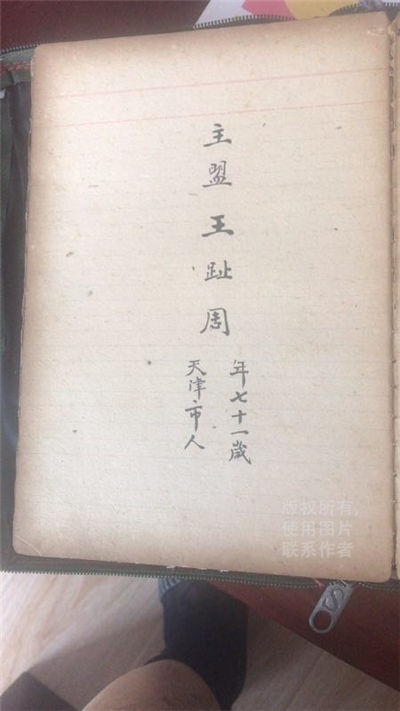 主盟王趾周
年七十一歲
天津市人
版权所有,
使用图片
联系作者